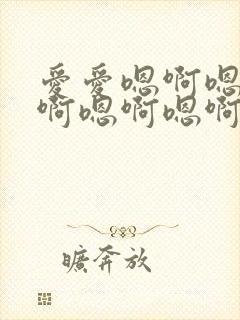 爱爱嗯啊嗯
啊嗯啊嗯啊
旷奔放